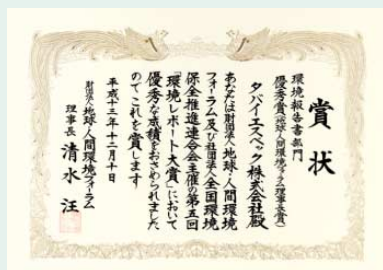 賞状
環境報告書部門
優秀賞(地球・人間環境フォーラム理事長賞)
タバイエスペック株式会社殿
あなたは財団法人地球・人間環境
フォーラム及び社団法人全国環境
保全推進連合会主催の第五回
「環境レポート大賞」において
優秀な成績をおさめられました
のでこれを賞します
平成十三年十二月十日
財団法人地球・人間環境フォーラム
理事長 清水 汪